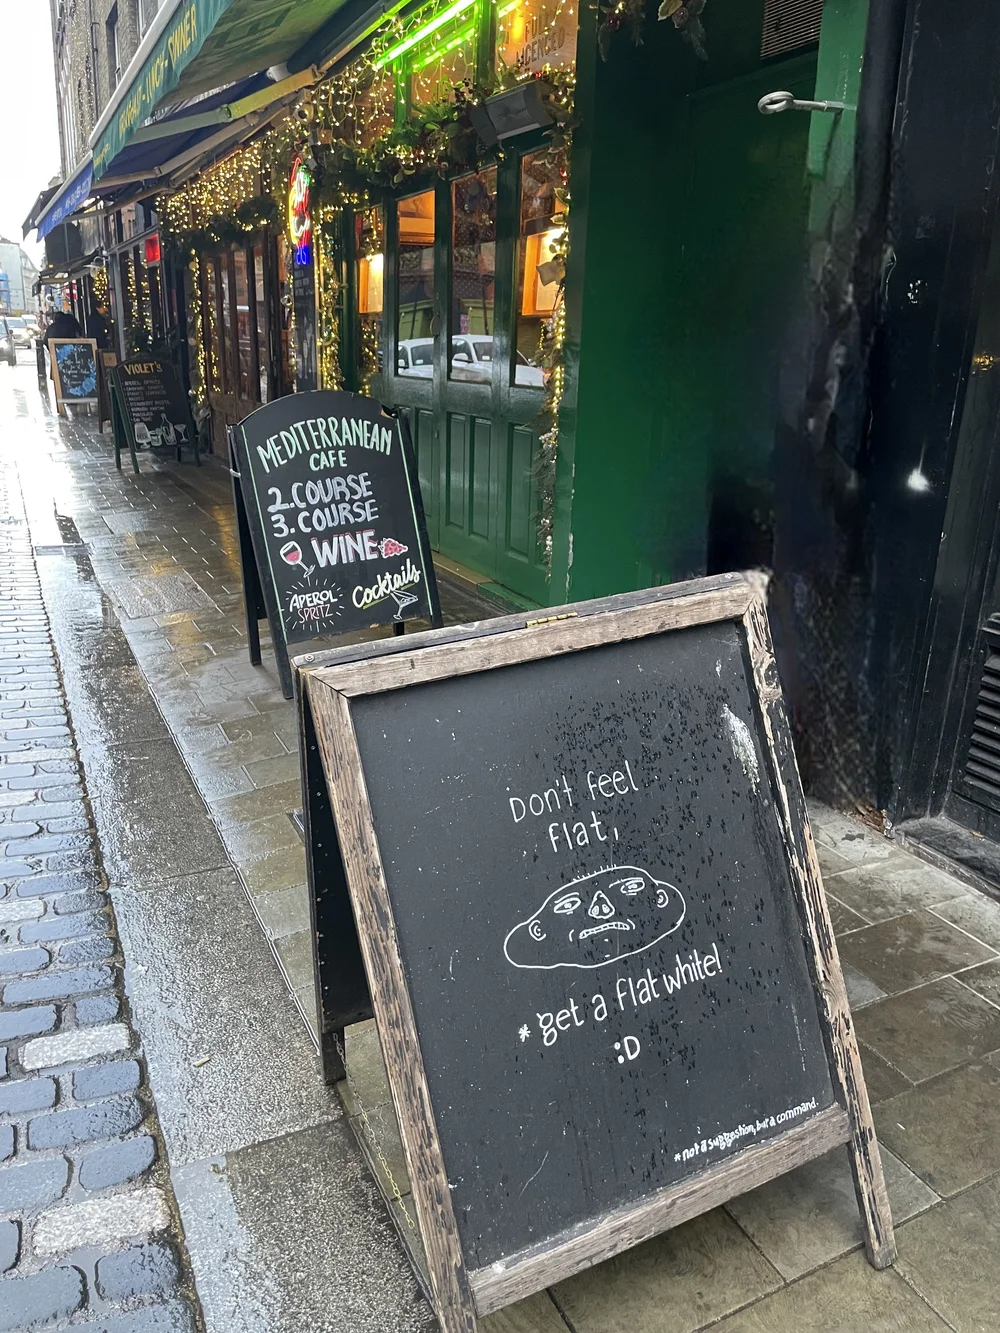 FULLY
LICENCED
VIOLET'S
MEDITERRANEAN
CAFE
2.COURSE
3.COURSE
WINE
APEROL
SPRITZ
Cocktails
Don't feel
flat,
*get a flat white!
:D
*not a suggestion, but a command.